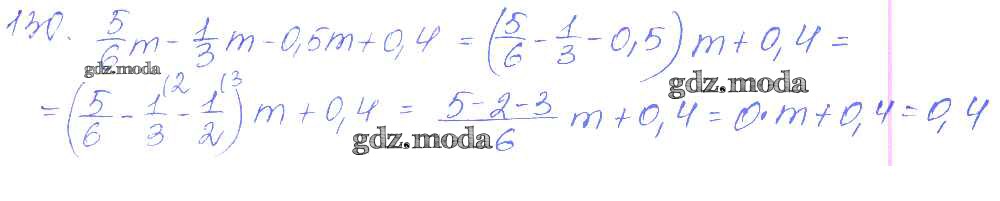 130. 5/6 m - 1/3 m - 0,5m + 0,4 = (5/6 - 1/3 - 0,5) m + 0,4 =
gdz.moda
gdz.moda
= (5/6 - 1/3 (2 - 1/2 (3) m + 0,4 = 5-2-3/6 m + 0,4 = 0·m + 0,4 = 0,4
gdz.moda